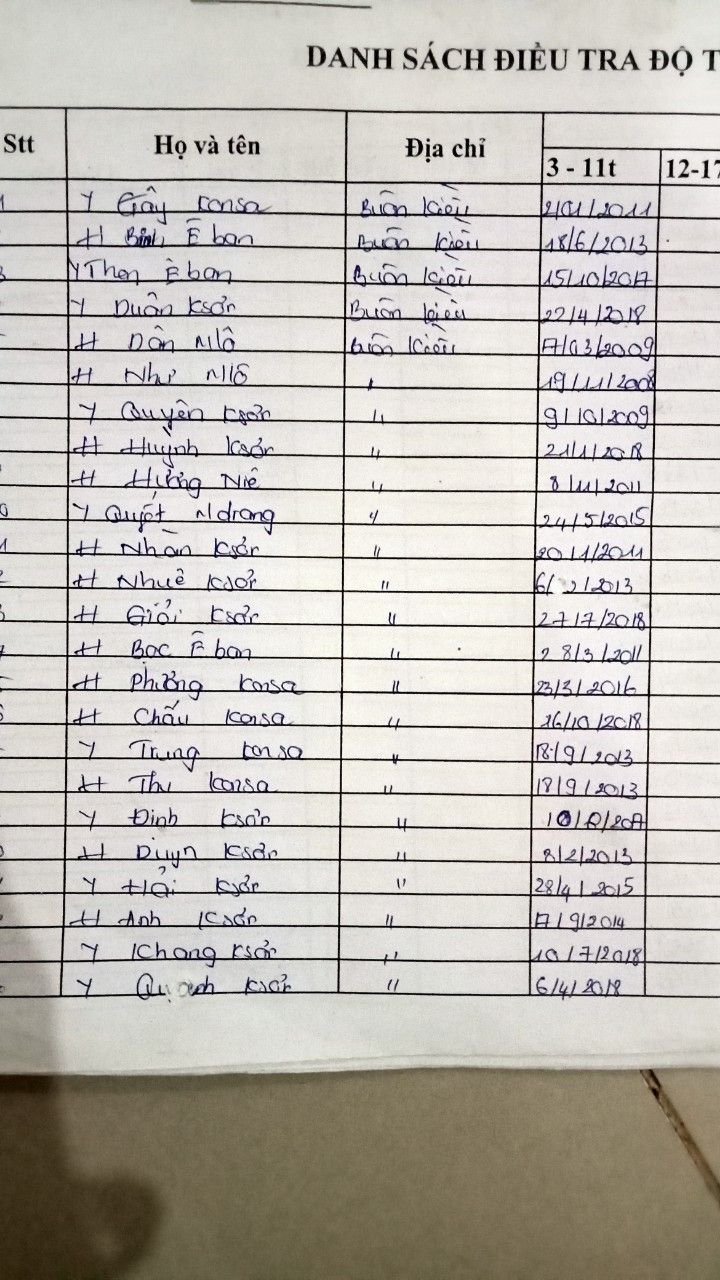 DANH SÁCH ĐIỀU TRA ĐỘ T
Stt Họ và tên Địa chỉ
3 - 11t 12-17
1 Y Gây Konsa Buôn Kiều 2/01/2011
H Bình Ê ban Buôn Kiều 18/6/2013
3 Y Then Ê ban Buôn Kiều 15/10/2017
Y Duân Ksơr Buôn Kiều 22/4/2018
H Dôn Mlô Buôn Kiều 7/03/2009
H Như Mlô " 19/11/2008
Y Quyên Ksơr " 9/10/2009
H Huỳnh Ksơr " 21/1/2018
H Hường Niê " 8/11/2011
0 Y Quyết Mdrang " 24/5/2015
1 H Nhàn Ksơr " 20/1/2011
2 H Nhuê Ksơr " 6/2/2013
3 H Giỏi Ksơr " 27/7/2018
H Bạc Ê ban " 28/3/2011
5 H Phương Konsa " 23/3/2016
6 H Chấu Konsa " 16/10/2018
Y Trung Konsa " 18/9/2013
H Thu Konsa " 18/9/2013
Y Đinh Ksơr "
H Duyn Ksơr " 8/2/2013
Y Hải Ksơr " 28/4/2015
H Anh Ksơr " 17/9/2014
Y Khang Ksơr " 10/7/2018
Y Ksơr " 6/4/2018